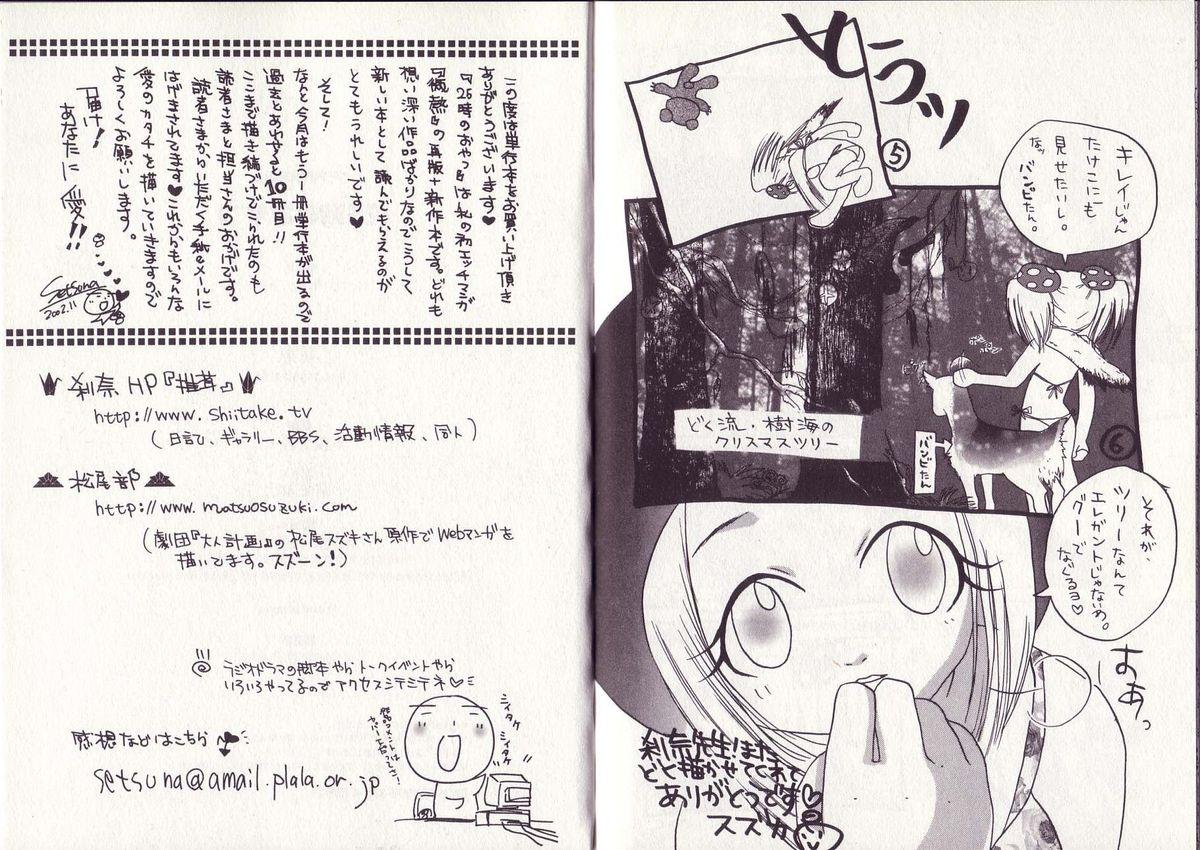 とうッ
⑤
キレイじゃん
たけこにも
見せたいし。
なッ
バンビたん。
どく流・樹海の
クリスマスツリー
バンビたん
⑥
それが、
ツリーなんて
エレガントじゃないわ。
グーで
なぐるヨ♡
すあっ
刹奈先生!また
どく描かせてくれて
ありがとうです♡
スズカ
この度は単行本をお買い上げ頂き
ありがとうございます♥
『26時のおやつ』は私の初エッチマンガ
の再版+新作本です。どれも
想い深い作品ばかりなのでこうして
新しい本として読んでもらえるのが
とてもうれしいです♥
そして!
なんと今月はもう一冊単行本が出るので
過去とあわせると10冊目!!
ここまで描き続けてこられたのも
読者さまと担当さんのおかげです。
読者さまからいただく手紙やメールに
はげまされてます♥これからもいろんな
愛のカタチを描いていきますので
よろしくお願いします。
届け!
あなたに愛!!
Setsuna
2002.11
刹奈HP『椎茸』
http://www.shiitake.tv
(日記、ギャラリー、BBS、活動情報、同人)
松尾部
http://www.matsuosuzuki.com
(劇団『大人計画』の松尾スズキさん原作でWebマンガを
描いてます。スズーン!)
ラジオドラマの脚本やらトークイベントやら
いろいろやってるのでアクセスシテミテネ♡
シイタケ
シイタケ
感想などはこちら
setsuna@amail.plala.or.jp